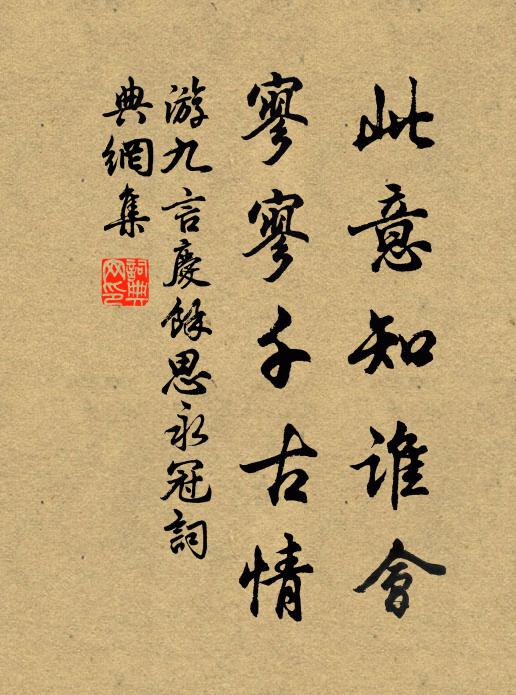 此意知誰會
寥寥千古情
游九言慶餘思永冠詞
典網集
詞典
网印